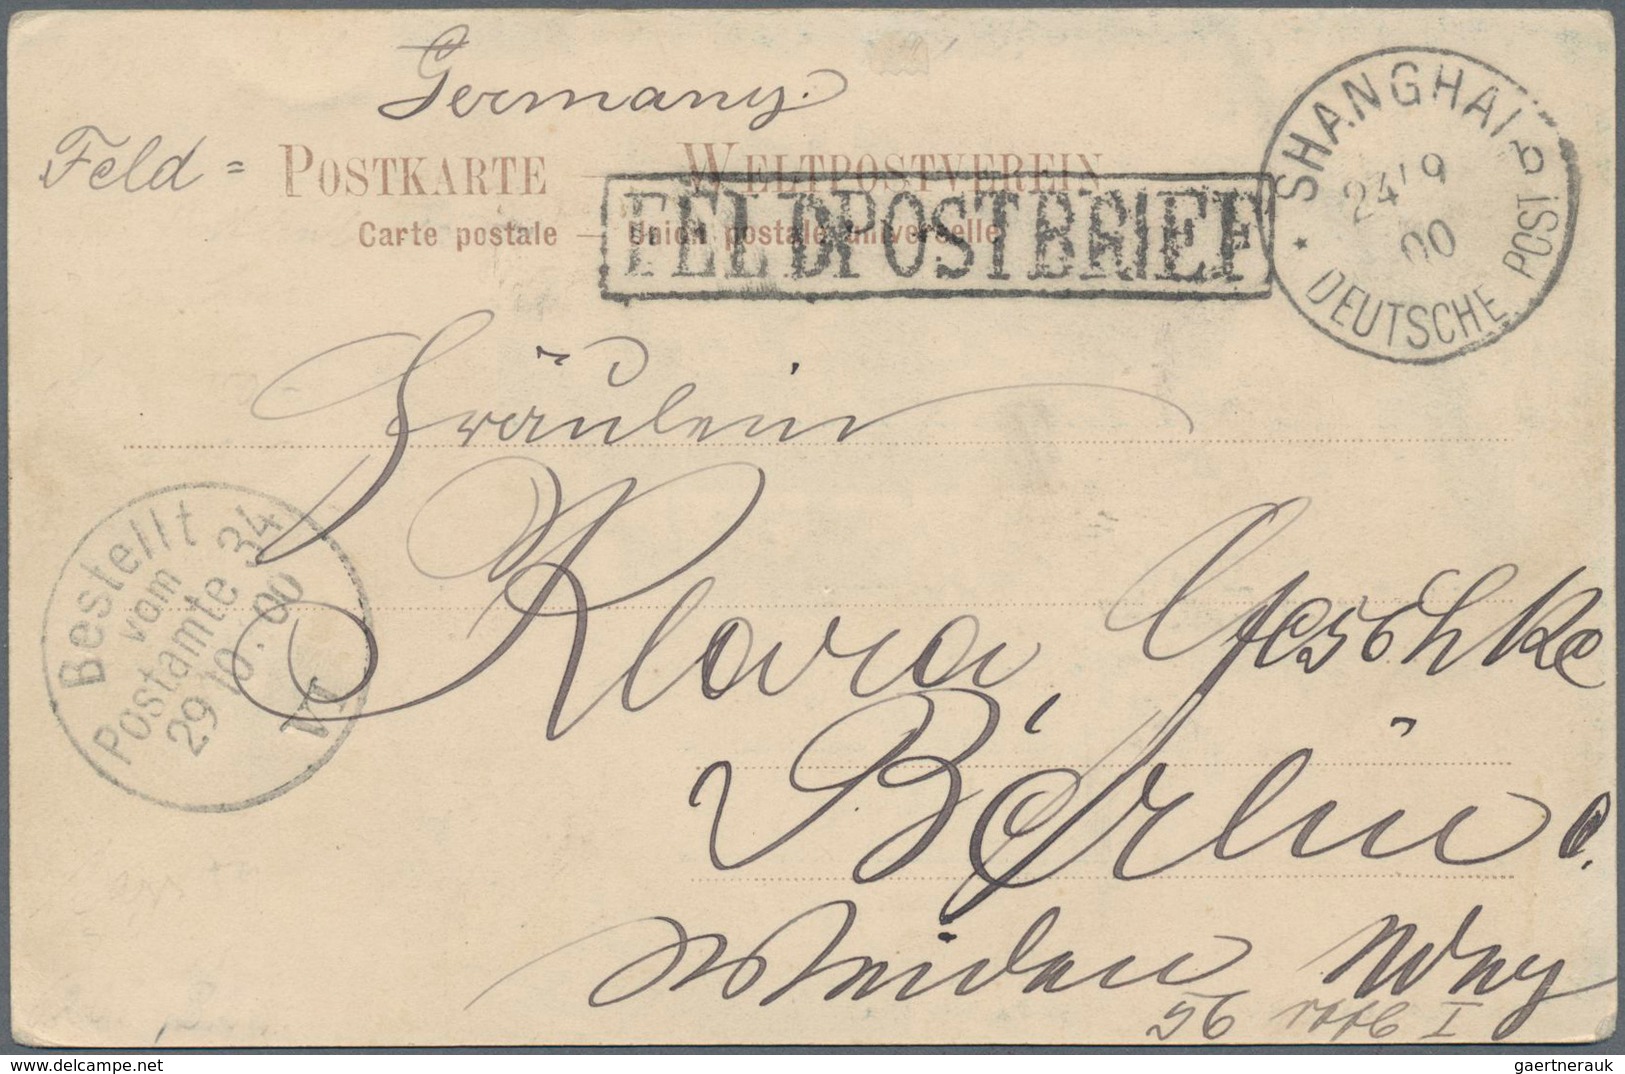 Germany.
Feld = POSTKARTE — WELTPOSTVEREIN
Carte postale — Union postale universelle
FELDPOSTBRIEF
SHANGHAI b
24/9
00
* DEUTSCHE POST
Fräulein
Klara Geschke
Berlin O.
Weiden Weg
56 I
Bestellt
vom
Postamte 34
29 10. 00
VI
gaertnerauk@delcampe.net